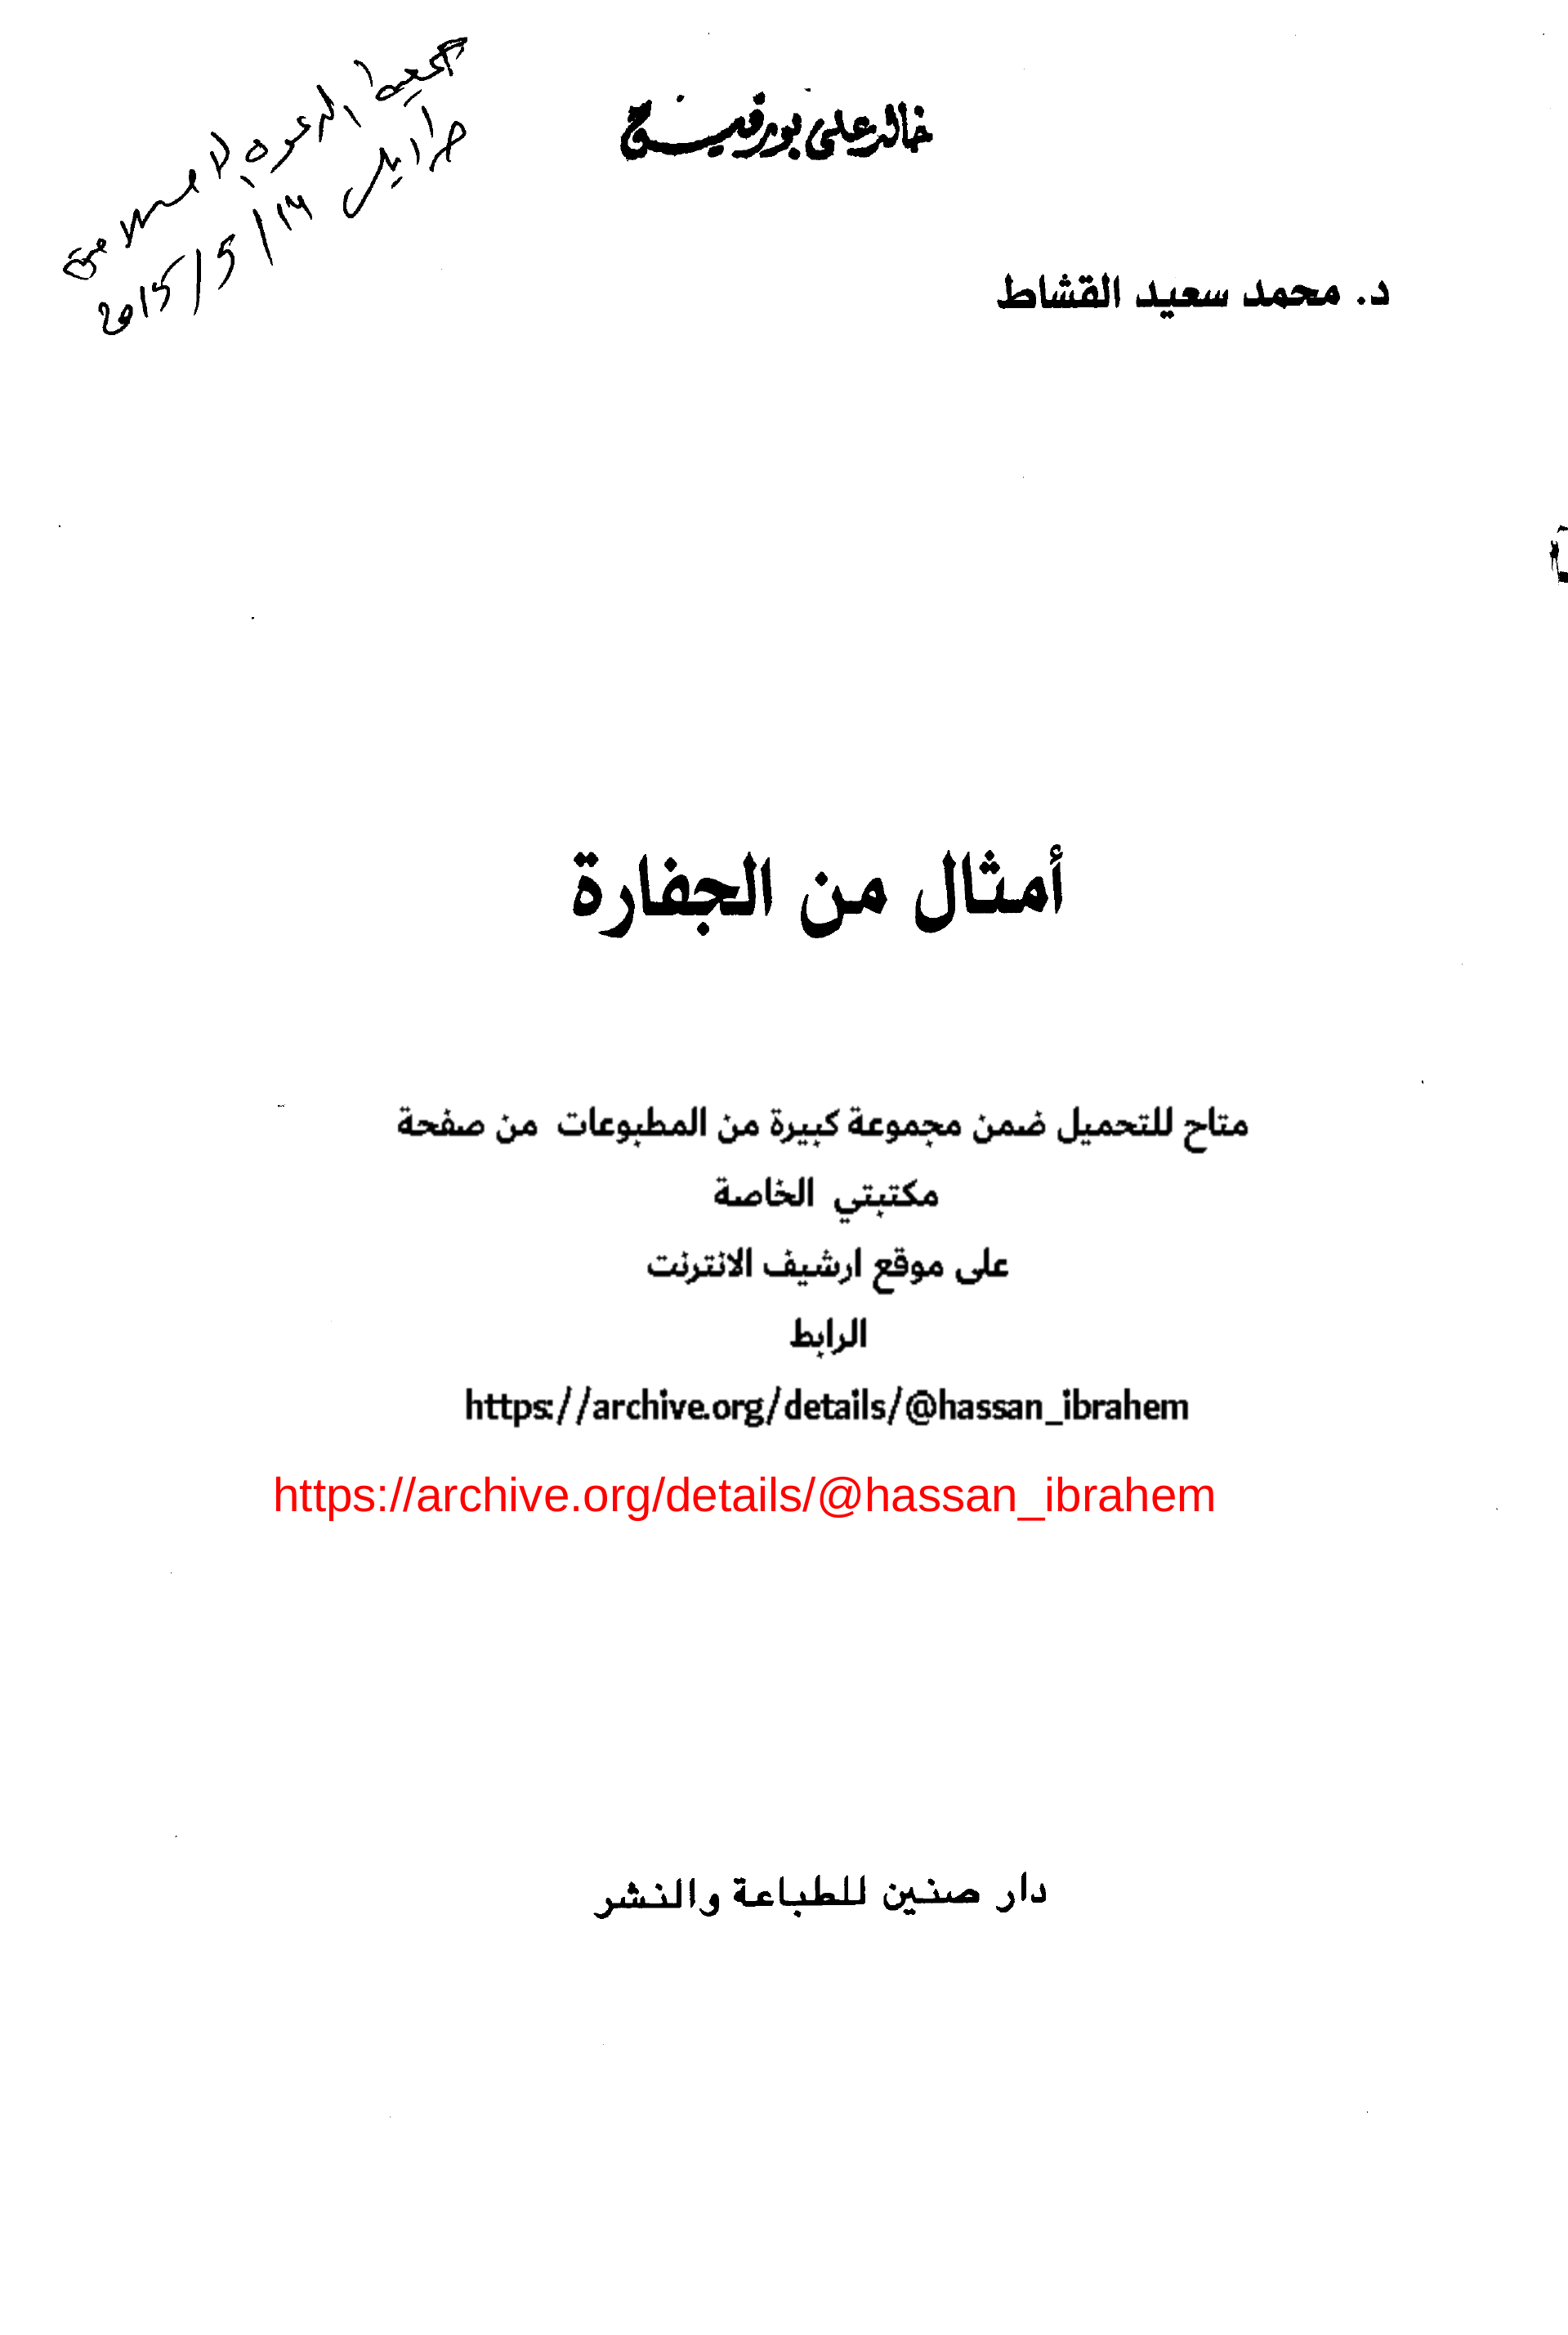 خالد علي بورقيق
جمعية الدعوة الإسلامية
طرابلس
2015/5/
د. محمد سعيد القشاط
أمثال من الجفارة
متاح للتحميل ضمن مجموعة كبيرة من المطبوعات من صفحة
مكتبتي الخاصة
على موقع ارشيف الانترنت
الرابط
https://archive.org/details/@hassan_ibrahem
https://archive.org/details/@hassan_ibrahem
دار صنين للطباعة والنشر